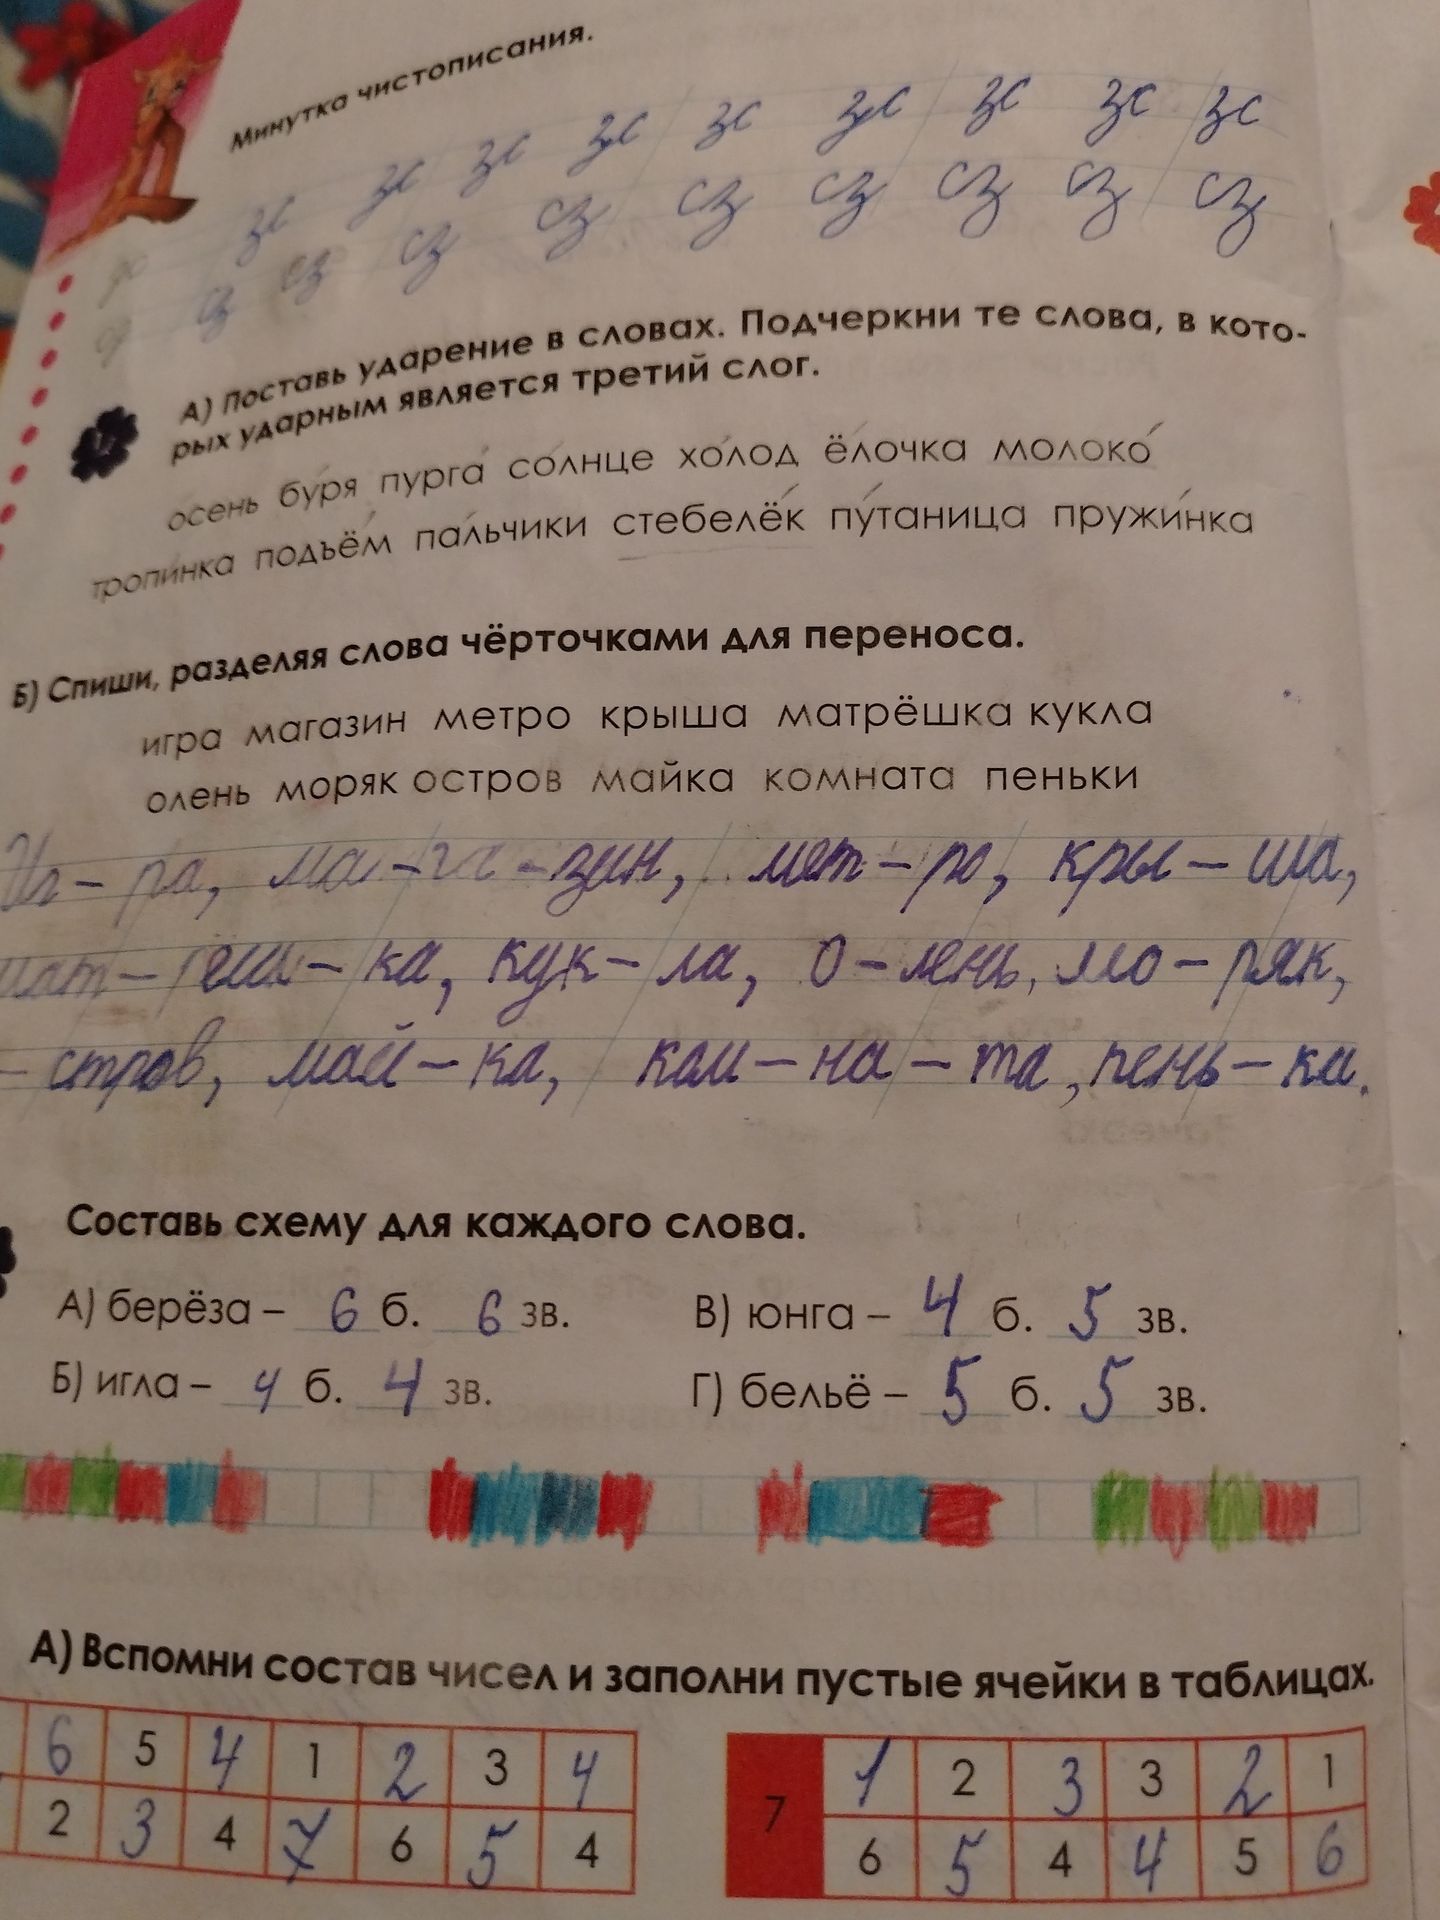 Минутка чистописания.
зс зс зс зс зс зс зс зс зс
сз сз сз сз сз сз сз сз сз
А) Поставь ударение в словах. Подчеркни те слова, в кото-
рых ударным является третий слог.
осень бу́ря пурга́ со́лнце хо́лод ёлочка молоко́
тропи́нка подъём па́льчики стебелёк пу́таница пружи́нка
Б) Спиши, разделяя слова чёрточками для переноса.
игра магазин метро крыша матрёшка кукла
олень моряк остров майка комната пеньки
Иг – ра, ма – га – зин, мет – ро, кры – ша,
мат – рёш – ка, кук – ла, о – лень, мо – ряк,
– стров, май – ка, ком – на – та, пень – ка.
Составь схему для каждого слова.
А) берёза – 6 б. 6 зв. В) юнга – 4 б. 5 зв.
Б) игла – 4 б. 4 зв. Г) бельё – 5 б. 5 зв.
А) Вспомни состав чисел и заполни пустые ячейки в таблицах.
6 5 4 1 2 3 4
2 3 4 7 6 5 4
7
1 2 3 3 2 1
6 5 4 4 5 6